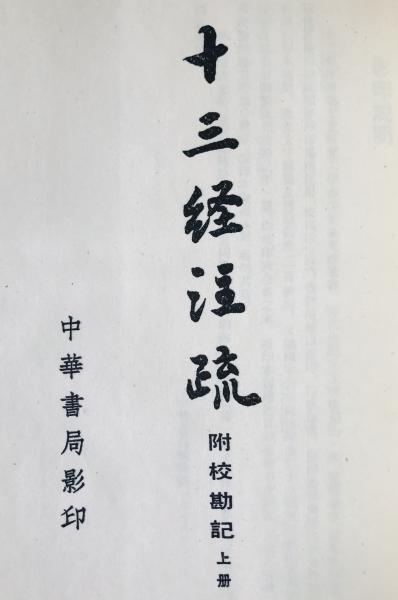 十三経注疏
附校勘記上册
中華書局影印